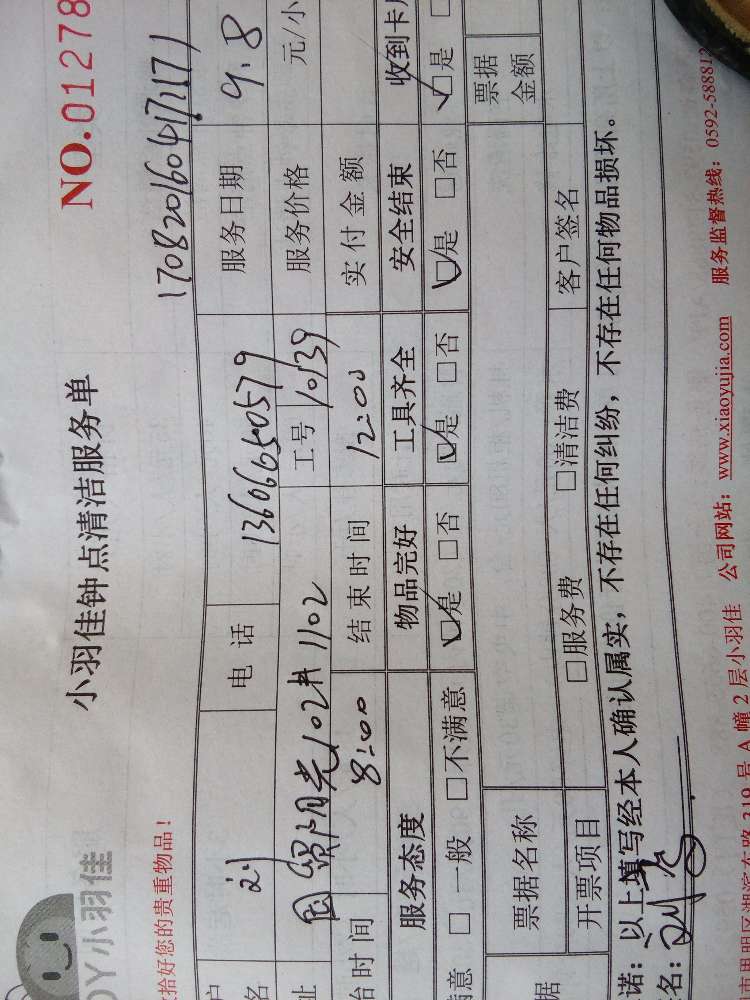 小羽佳
小羽佳钟点清洁服务单
NO.01278
拾好您的贵重物品！
170820160417117
户名 刘 电话 13606650579 服务日期 9.8
址 国贸阳光102# 1102 工号 10139 服务价格 元/小
台时间 8:00 结束时间 12:00 实付金额
服务态度 物品完好 工具齐全 安全结束 收到卡
满意 □一般 □不满意 □是 □否 □是 □否 □是 □否 □是
据 票据名称 票据金额
开票项目 □服务费 □清洁费 客户签名
诺：以上填写经本人确认属实，不存在任何纠纷，不存在任何物品损坏。
名：
市思明区湖滨东路 319 号 A 幢 2 层小羽佳 公司网站：www.xiaoyujia.com 服务监督热线：0592-588812